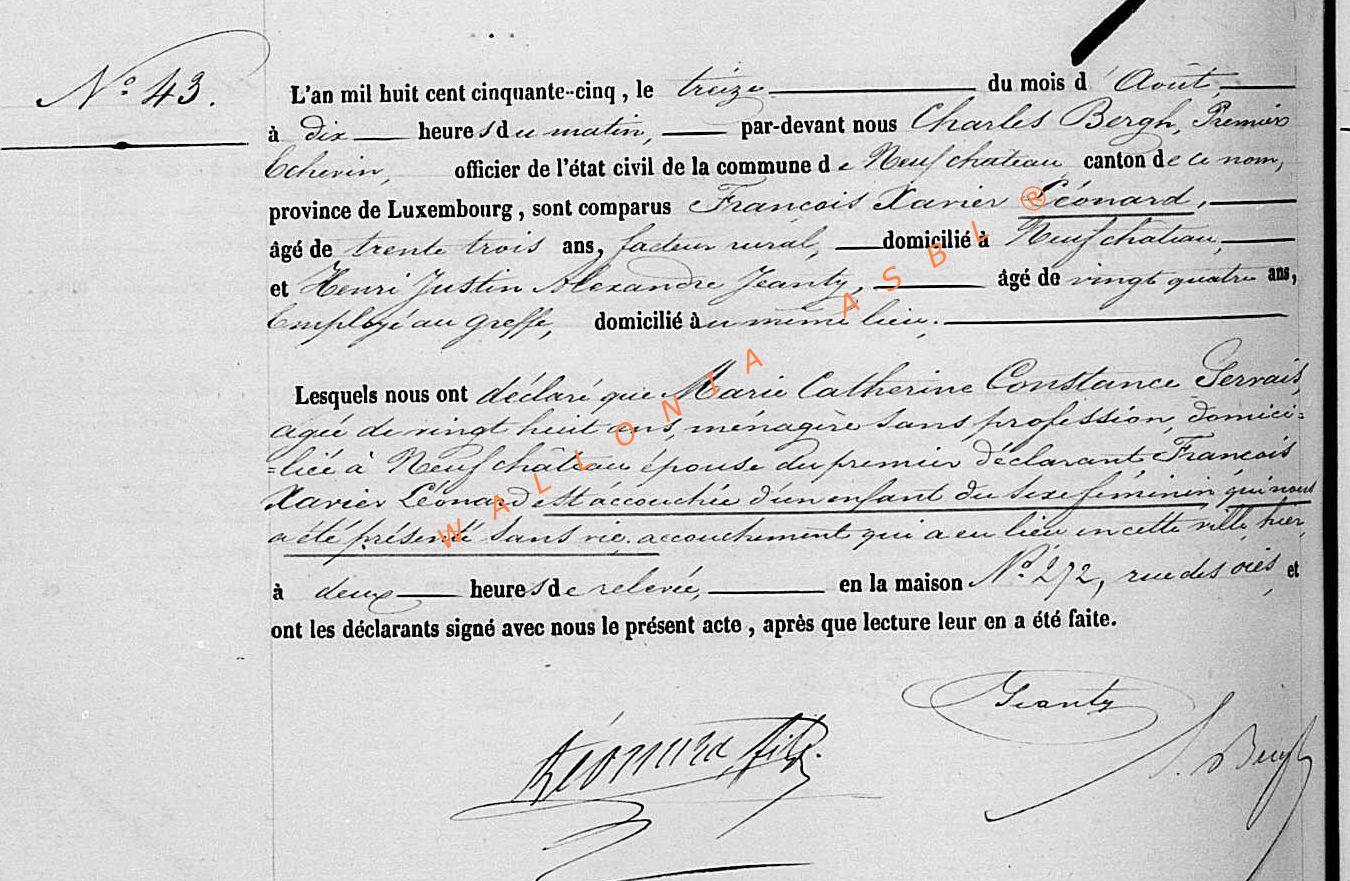 N° 43.
L'an mil huit cent cinquante-cinq, le treize du mois d'Août,
à dix heures du matin, par-devant nous Charles Bergh, Premier
Echevin, officier de l'état civil de la commune de Neufchateau canton de ce nom,
province de Luxembourg, sont comparus François Xavier Léonard,
âgé de trente trois ans, facteur rural, domicilié à Neufchateau,
et Henri Justin Alexandre Jeanty, âgé de vingt quatre ans,
Employé au greffe, domicilié au même lieu.
Lesquels nous ont déclaré que Marie Catherine Constance Servais,
agée de vingt huit ans, ménagère sans profession, domici=
=liée à Neufchâteau épouse du premier déclarant François
Xavier Léonard est accouchée d'un enfant du sexe féminin qui nous
a été présenté sans vie. accouchement qui a eu lieu en cette ville, hier,
à deux heures de relevée, en la maison N° 272, rue des oies, et
ont les déclarants signé avec nous le présent acte, après que lecture leur en a été faite.
Jeanty
Léonard fils.
Bergh
WALLONIA ASBL ®